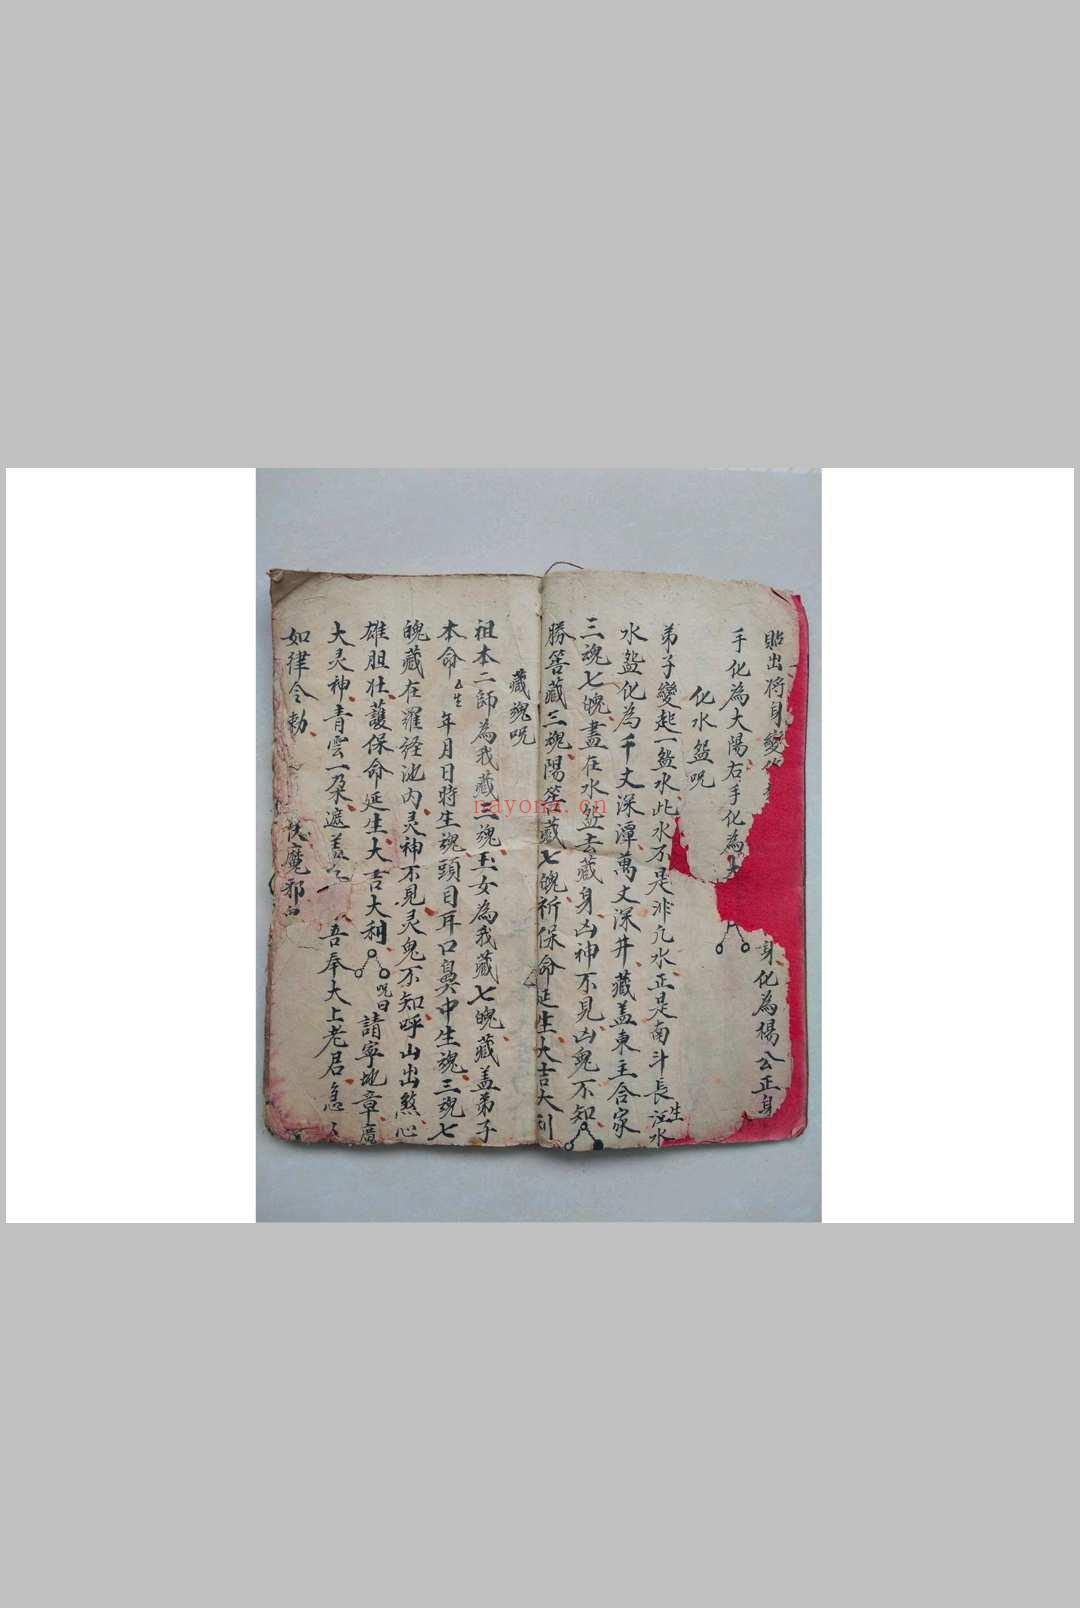 貼出将身變
身化為楊公正身
手化為大陽右手化為大
化水盌呪
弟子變起一盌水此水不是非凡水正是南斗長生江水
水盌化為千丈深潭萬丈深井藏盖東主合家
三魂七魄盡在水盌去藏身凶神不見凶鬼不知
勝筶藏三魂陽筶藏七魄祈保命延生大吉大利
藏魂呪
祖本二師為我藏三魂玉女為我藏七魄藏盖弟子
本命厶生年月日時生魂頭目耳口鼻中生魂三魂七
魄藏在羅経池内灵神不見灵鬼不知呼山出煞心
雄胆壮護保命延生大吉大利呪曰請寧地章
大灵神青雲一朶遮盖吾奉大上老君急
如律令勅
魔邪
nayona.cn